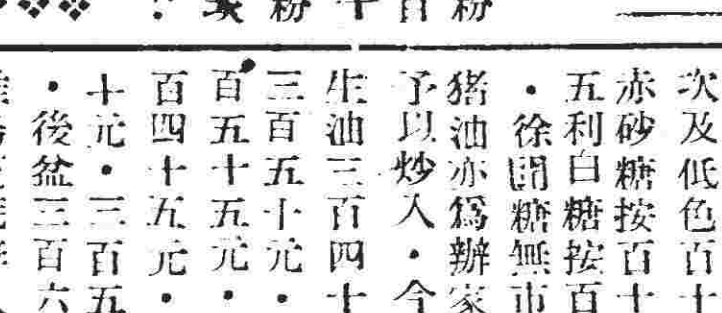 次及低色百十
赤砂糖按百十
五利白糖按百
・徐聞糖無市
猪油亦爲辦家
予以炒入・今
生油三百四十
三百五十元・
百五十五元・
百四十五元・
十元・三百五
・後盆三百六